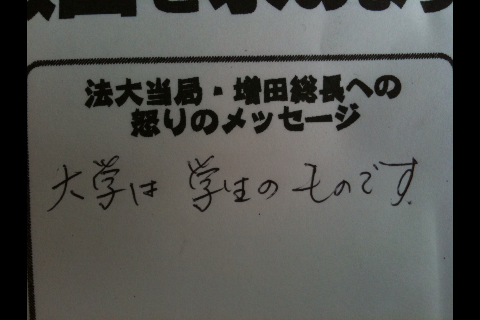 法大当局・増田総長への
怒りのメッセージ
大学は 学生の ものです.